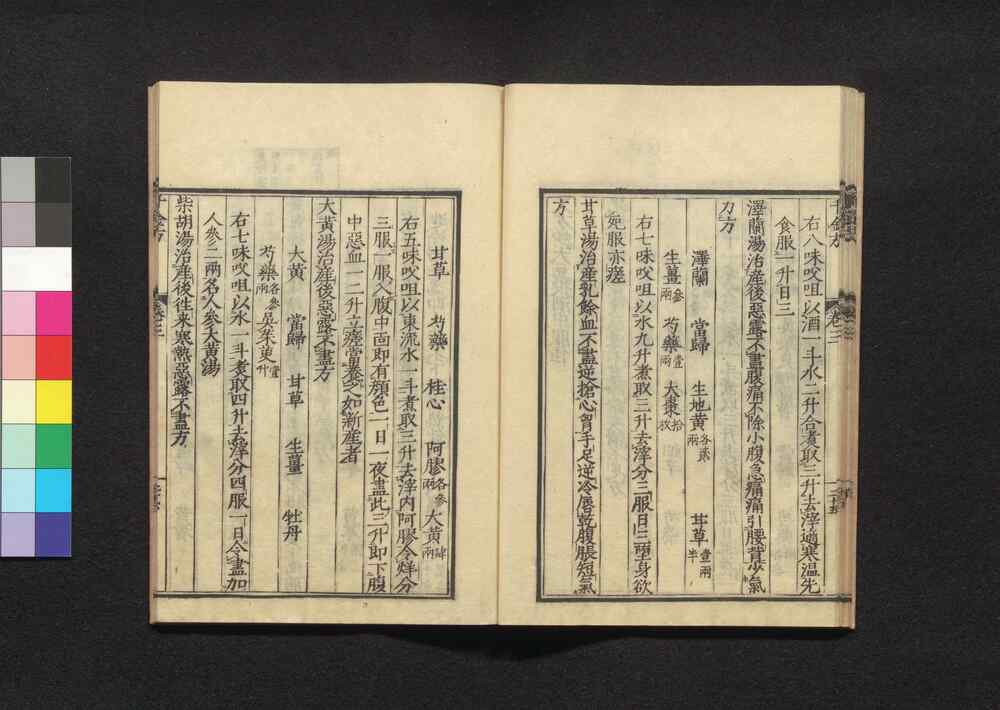 右八味㕮咀以酒一斗水二升合煮取三升去滓適寒温先
食服一升日三
澤蘭湯治産後惡露不盡腹痛不除小腹急痛痛引腰背少氣
力方
澤蘭 當歸 生地黄各貳兩 甘草壹兩半
生薑參兩 芍藥壹兩 大棗拾枚
右七味㕮咀以水九升煮取三升去滓分三服日三墮身欲
死服亦瘥
甘草湯治産乳餘血不盡逆搶心胷手足逆冷脣乾腹脹短氣
方
甘草 芍藥 桂心 阿膠各參兩 大黄肆兩
右五味㕮咀以東流水一斗煮取三升去滓内阿膠令烊分
三服一服入腹中面即有顔色一日一夜盡此三升即下腹
中惡血一二升立瘥當養之如新産者
大黄湯治産後惡露不盡方
大黄 當歸 甘草 生薑 牡丹
芍藥各參兩 吳茱萸壹升
右七味㕮咀以水一斗煮取四升去滓分四服一日令盡加
人參二兩名人參大黄湯
柴胡湯治産後往来寒熱惡露不盡方